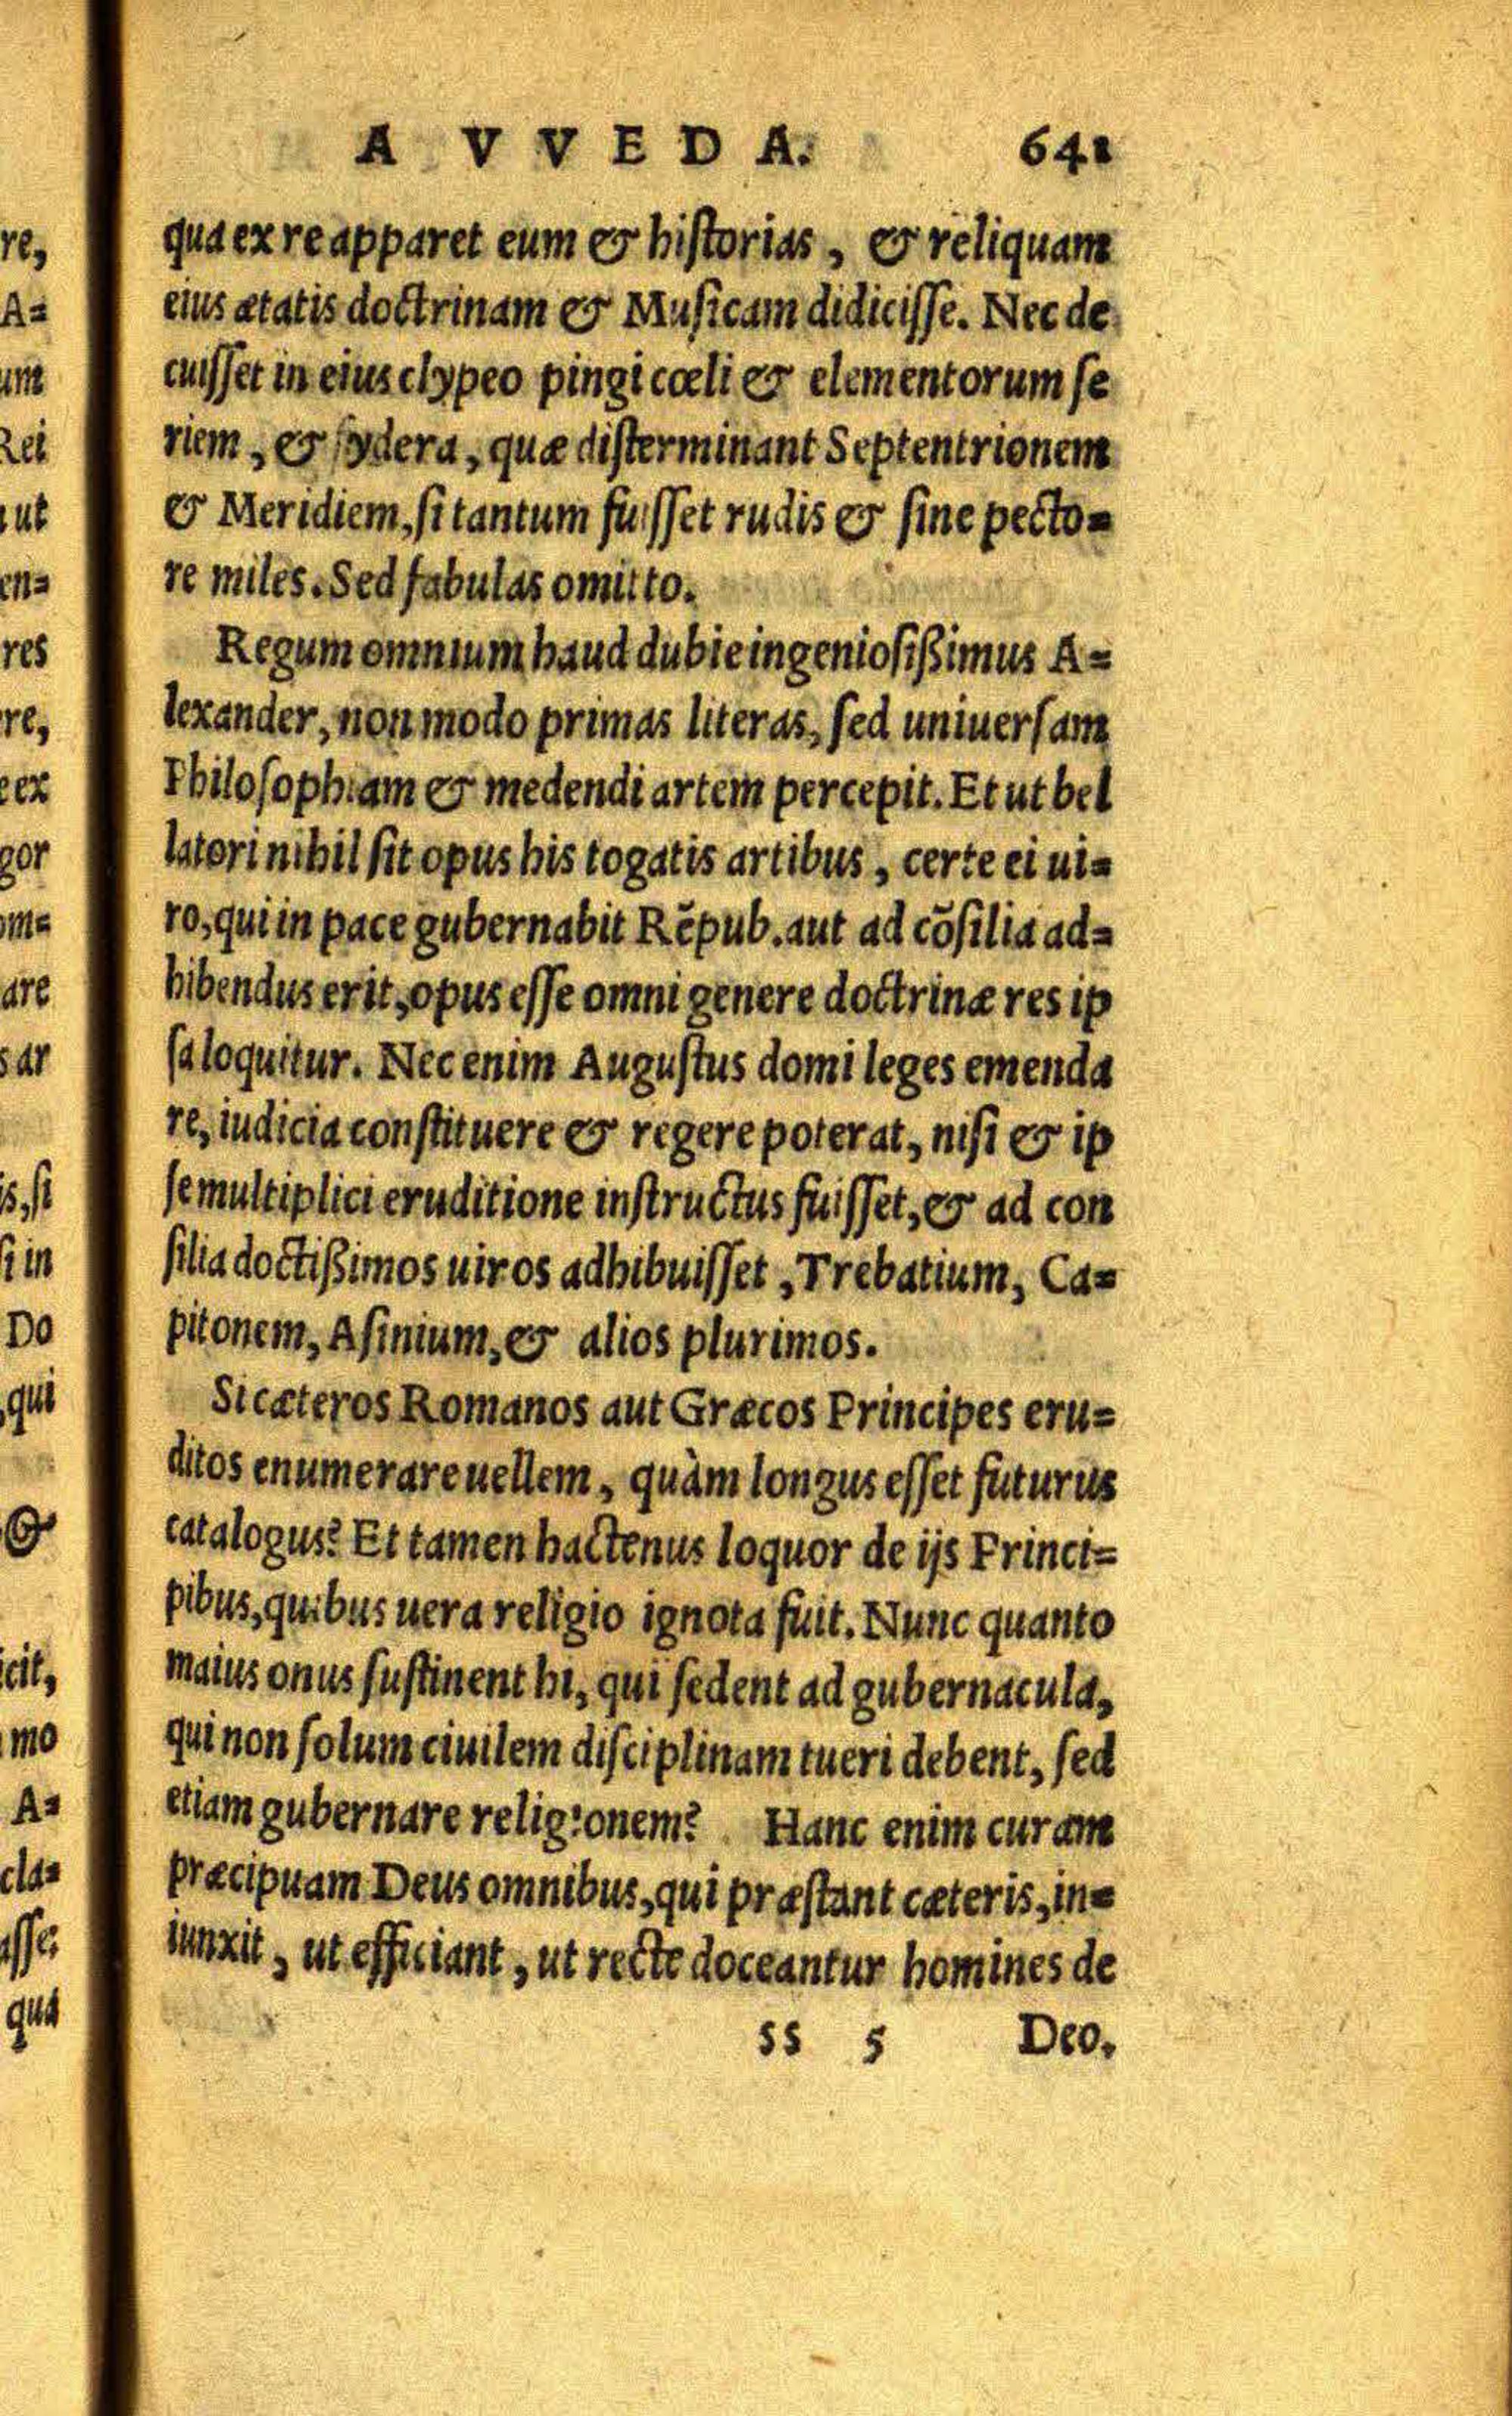 A VVEDA. 641
qua ex re apparet eum & historias, & reliquam
eius ætatis doctrinam & Musicam didicisse. Nec de
cuisset in eius clypeo pingi cœli & elementorum se
riem, & sydera, quæ disterminant Septentrionem
& Meridiem, si tantum fuisset rudis & sine pecto=
re miles. Sed fabulas omitto.
Regum omnium haud dubie ingeniosißimus A=
lexander, non modo primas literas, sed uniuersam
Philosophiam & medendi artem percepit. Et ut bel
latori nihil sit opus his togatis artibus, certe ei ui=
ro, qui in pace gubernabit Rēpub. aut ad cōsilia ad=
hibendus erit, opus esse omni genere doctrinæ res ip
sa loquitur. Nec enim Augustus domi leges emenda
re, iudicia constituere & regere poterat, nisi & ip
se multiplici eruditione instructus fuisset, & ad con
silia doctißimos uiros adhibuisset, Trebatium, Ca=
pitonem, Asinium, & alios plurimos.
Si cæteros Romanos aut Græcos Principes eru=
ditos enumerare uellem, quàm longus esset futurus
catalogus? Et tamen hactenus loquor de ijs Princi=
pibus, quibus uera religio ignota fuit. Nunc quanto
maius onus sustinent hi, qui sedent ad gubernacula,
qui non solum ciuilem disciplinam tueri debent, sed
etiam gubernare religionem? Hanc enim curam
præcipuam Deus omnibus, qui præstant cæteris, in=
iunxit, ut efficiant, ut recte doceantur homines de
ss 5 Deo.